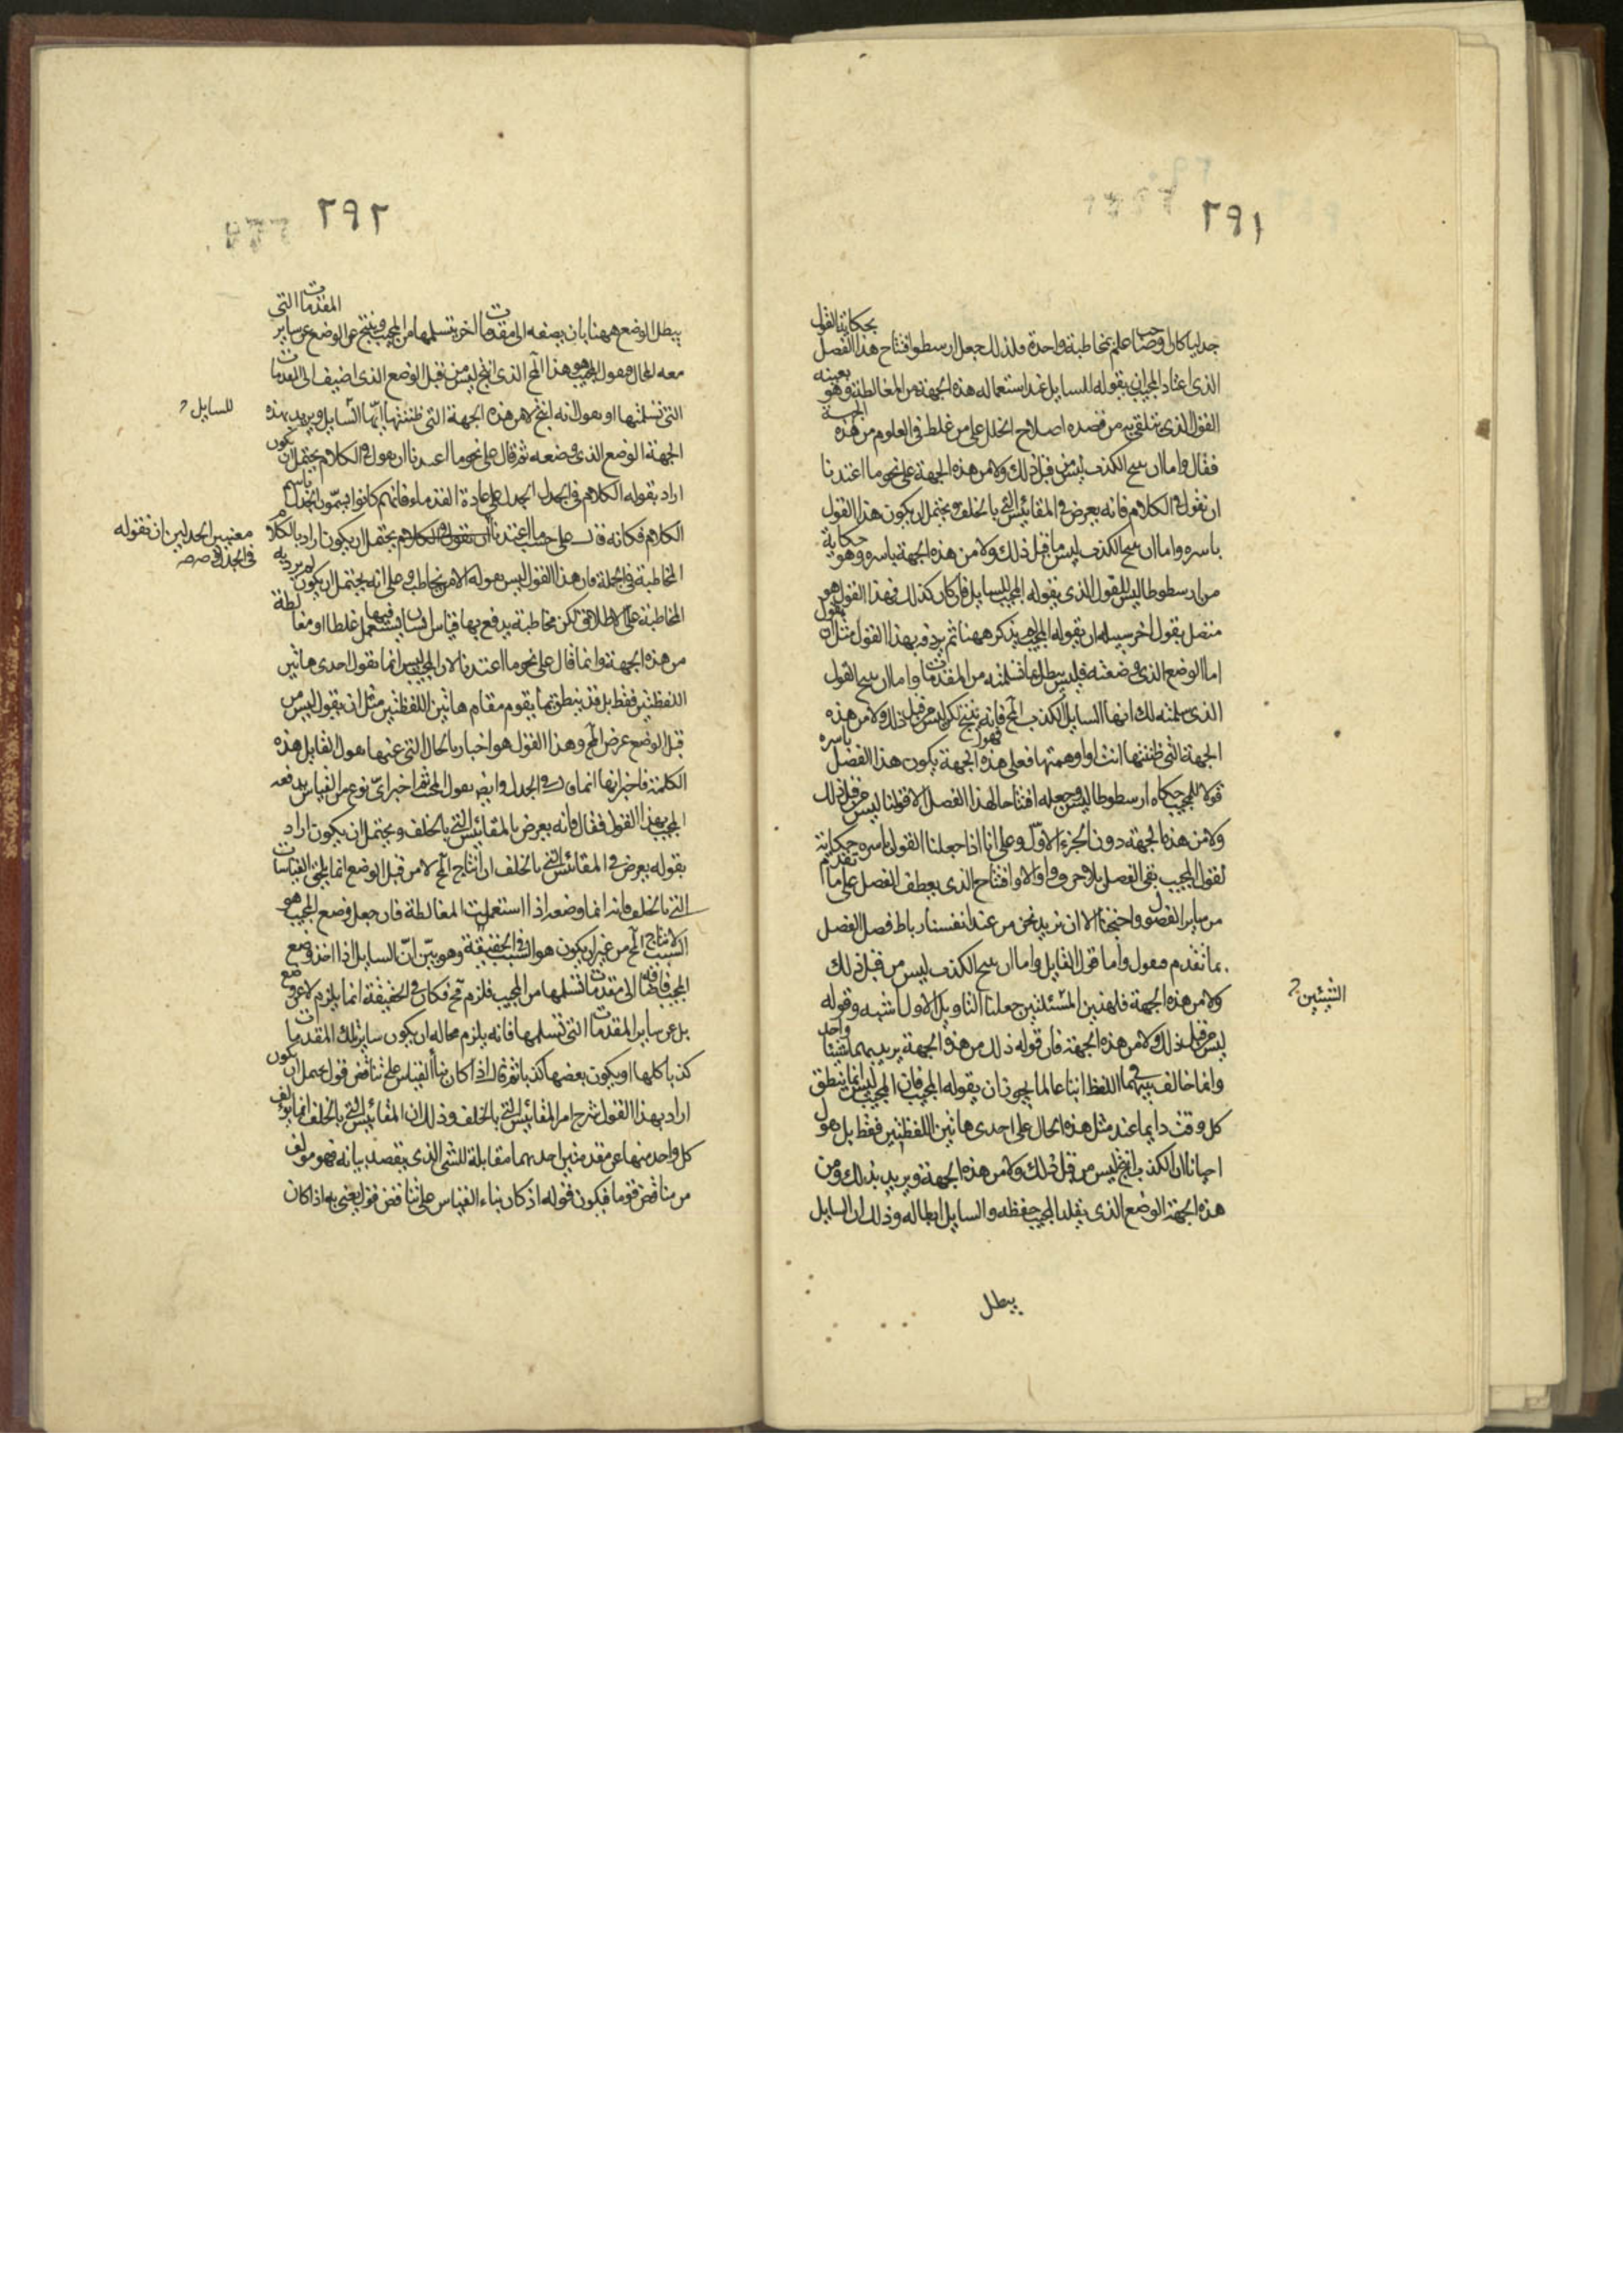 ٢٩١
جدليا كان اوحسا علم بمخاطبة واحدة فلذلك جعل ارسطو افتتاح هذا الفصل بحكايته القول
الذى اعتاد المجيب ان يقوله للسايل عند استعماله هذه الجهة من المغالطة وهو بعينه
القول الذى يتلقى به من قصده اصلاح الخلل على من غلط فى العلوم من هذه الجهة
فقال واما ان ينتج الكذب ليس من قبل ذلك ولا من هذه الجهة على نحو ما اعتدنا
ان نقول فى الكلام فانه يعرض فى المقائيس التى بالخلف ويحتمل ان يكون هذا القول
باسره واما ان ينتج الكذب ليس من قبل ذلك ولا من هذه الجهة باسره وهو حكاية
من ارسطوطاليس للقول الذى يقوله المجيب للسايل فان كان كذلك فهذا القول هو
متصل بقول اخر سبيله ان يقوله المجيب لم يذكر ههنا ثم يردفه بهذا القول مثل ان يقول
اما الوضع الذى وضعته فليس يبطل بما تسلمته من المقدمات واما ان ينتج القول
الذى سلمته لك ايها السايل الكذب المح فانه ينتج لكن ليس من قبل ذلك ولا من هذه
الجهة التى ظننتها انت او اوهمتها فعلى هذه الجهة يكون هذا الفصل باسره
قولا للمجيب حكاه ارسطوطاليس وجعله افتتاحا لهذا الفصل لا قولنا ليس من قبل ذلك
ولا من هذه الجهة دون الجزء الاول وعلى انا اذا جعلنا القول باسره حكاية
لقول المجيب بقى الفصل بلا حرف واو اولا وافتتاح الذى يعطف الفصل على ما تقدم
من ساير الفصول واحتجنا الا ان نزيد نحن من عند انفسنا رباط فصل الفصل
بما تقدم فنقول واما قول القايل واما ان ينتج الكذب ليس من قبل ذلك
ولا من هذه الجهة فلهذين المسئلتين جعلنا التاويل الاول اشبه وقوله
الشيئين
ليس من قبل ذلك ولا من هذه الجهة فان قوله ذلك من هذه الجهة يريد بهما شيئا واحدا
وانما خالف بينهما فى اللفظ اتباعا لما يجوز ان يقوله المجيب فان المجيب ليس انما ينطق
كل وقت دايما عند مثل هذه الحال على احدى هاتين اللفظتين فقط بل يقول
احيانا ان الكذب انتج ليس من قبل ذلك ولا من هذه الجهة ويريد بذلك ومن
هذه الجهة الوضع الذى يقلد المجيب حفظه والسايل ابطاله وذلك ان السايل
يبطل
٢٩٢
يبطل الوضع ههنا بان يضيفه الى مقدمات اخر يتسلمها من المجيب وينتج عن الوضع عن ساير المقدمات التى
معه المحال فيقول المجيب هو هذا المح الذى انتج ليس من قبل الوضع الذى اضيف الى المقدمات
التى تسلمتها او يقول انه انتج لا من هذه الجهة التى ظننتها ايها السايل ويريد بهذه
للسايل
الجهة الوضع الذى وضعه ثم قال على نحو ما اعتدنا ان نقول فى الكلام يحتمل ان يكون
اراد بقوله الكلام فى الجدل الجدل على عادة القدماء فانهم كانوا يسمون الجدل باسم
الكلام فكانه قال على حسب ما اعتدنا ان نقول فى الكلام يحتمل ان يكون اراد بالكلام
معتبرين الجدليين ان نقوله فى الجدل
المخاطبة فى الجملة فان هذا القول ليس هو له الا من يخاطب وعلى انه يحتمل ان يكون لم يرد به
المخاطبة على الاطلاق لكن مخاطبة يدفع بها قياس انسان يستعمل فيها غلطا او مغالطة
من هذه الجهة وانما قال على نحو ما اعتدنا لان المجيب ليس انما يقول احدى هاتين
اللفظتين فقط بل قد ينطق بما يقوم مقام هاتين اللفظتين مثل ان يقول ليس من
قبل الوضع عرض المح وهذا القول هو اخبار بالحال التى عنها يقول القايل هذه
الكلمة فاخبر انها انما يقال فى الجدل وايض يقول المح ثم اخبر اى نوع من القياس يدفعه
المجيب بهذا القول فقال فانه يعرض بالمقائيس التى بالخلف ويحتمل ان يكون اراد
بقوله يعرض فى المقائيس التى بالخلف ان انتاج المح لا من قبل الوضع انما يلحق القياسات
التى بالخلف فانه انما وضعه اذا استعملت المغالطة فان جعل وضع المجيب هو
السبب لانتاج المح من غير ان يكون هو السبب فى الحقيقة وهو بين ان السايل اذا اخذ وضع
المجيب فاضافه الى مقدمات تسلمها من المجيب فلزم مح فكان فى الحقيقة انما يلزم لا عن وضع
بل عن ساير المقدمات التى تسلمها فانه يلزم محاله ان يكون ساير تلك المقدمات
كذبا كلها او يكون بعضها كذبا ثم قال اذا كان بنا القياس على تناقض قول يحتمل ان يكون
اراد بهذا القول شرح امر المقائيس التى بالخلف وذلك ان المقائيس التى بالخلف انما يولف
كل واحد منها عن مقدمتين احديهما مقابلة للشى الذى يقصد بيانه فهو مولف
من مناقض قول ما فيكون قوله اذ كان بناء القياس على تناقض قول يعنى به اذا كان